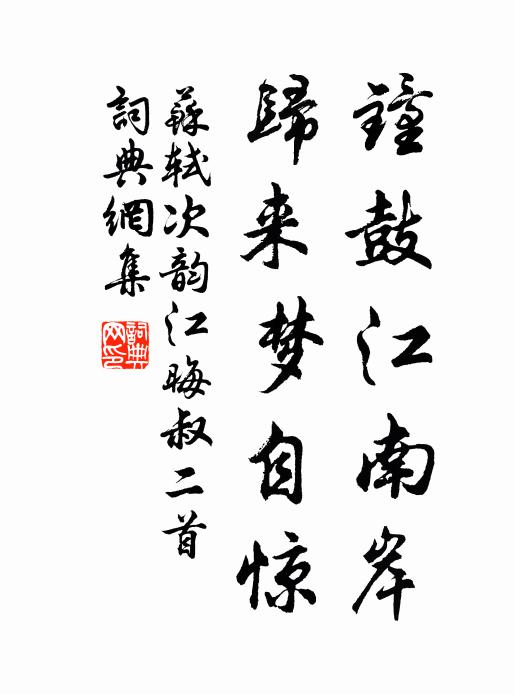 鐘鼓江南岸
歸来梦自惊
蘇轼次韵江晦叔二首
詞典網集
詞典网印